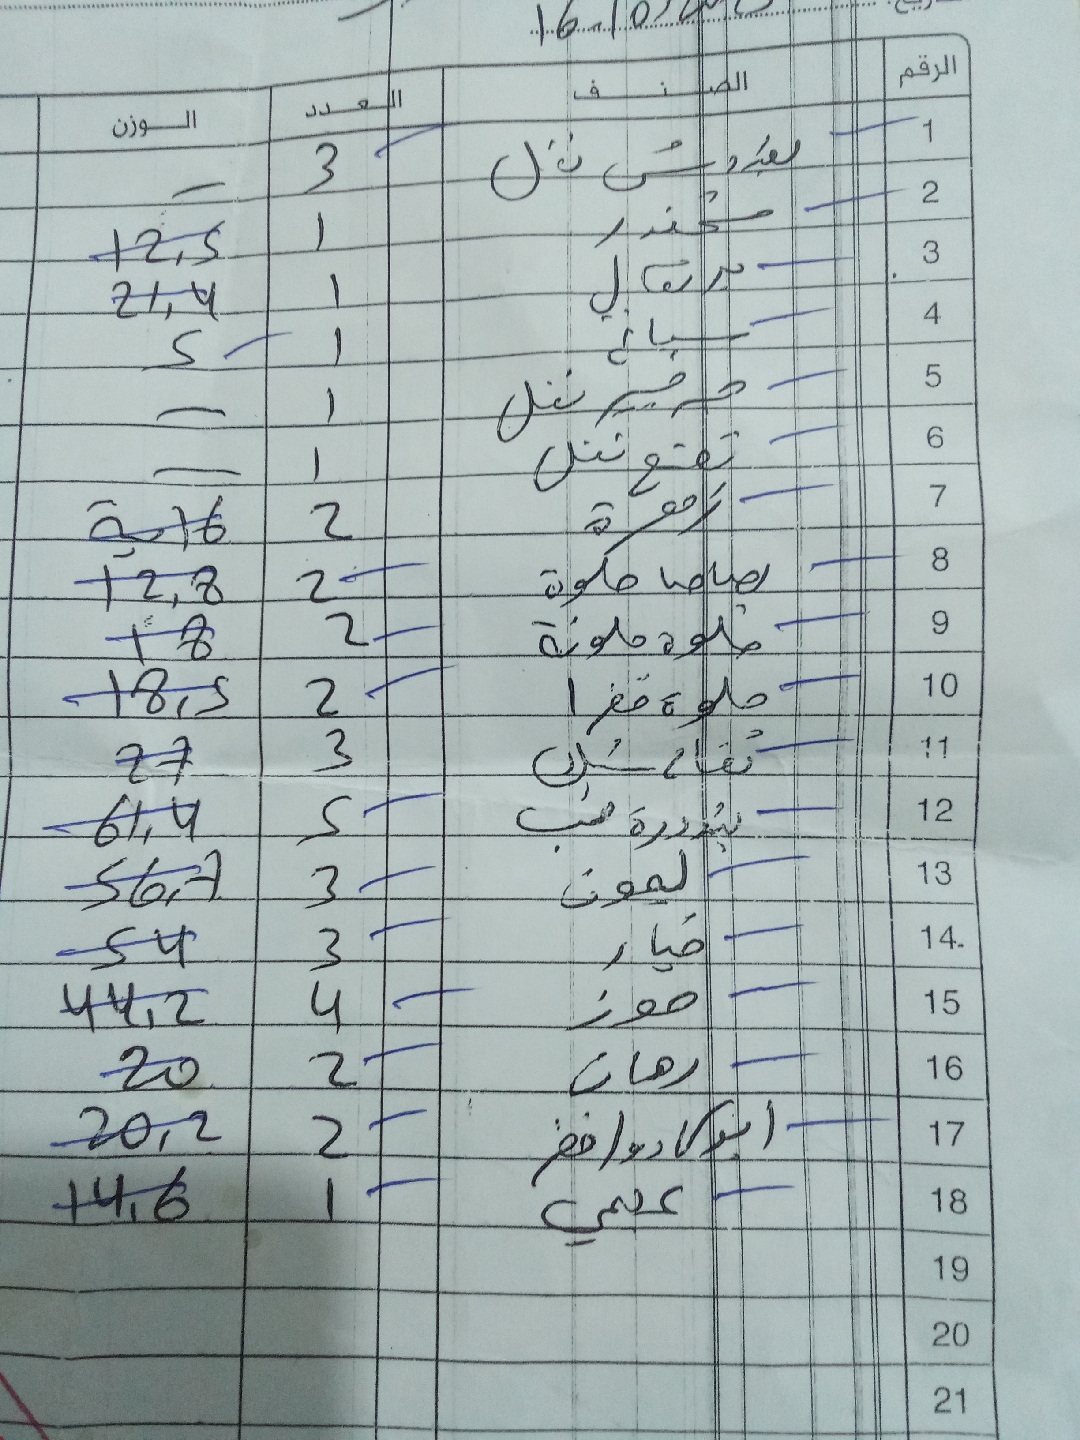 التاريخ: 16-10
الرقم الصنف العدد الوزن
1 بقدونس نثل 3 —
2 شمندر 1 12,5
3 برتقالي 1 21,4
4 سبانخ 1 5
5 جرجير نثل 1 —
6 نعنع نثل 1 —
7 زهرة 2 16
8 بطاطا حلوة 2 12,8
9 حلوة ملونة 2 18
10 حلوة خضرا 2 18,5
11 تفاح سكري 3 27
12 بندورة حب 5 61,4
13 ليمون 3 56,7
14 خيار 3 54
15 موز 4 44,2
16 رمان 2 20
17 ابوكادو اخضر 2 20,2
18 عجمي 1 14,6
19
20
21